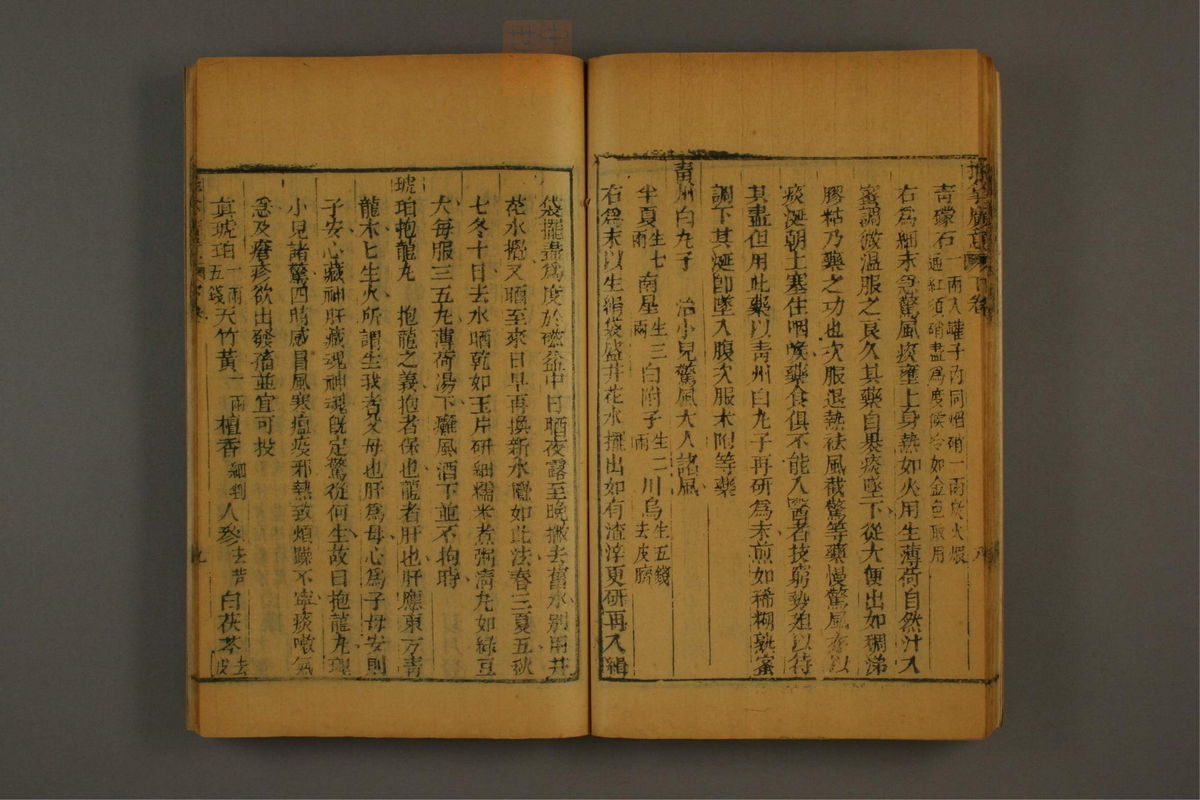 青礞石一兩入罐子內同焰硝一兩炭火煅通紅須硝盡為度候冷如金色取用
右爲細末急驚風痰壅上身熱如火用生薄荷自然汁入
蜜調微温服之良久其藥自裹痰墜下從大便出如稠涕
膠粘乃藥之功也次服退熱祛風截驚等藥慢驚風亦以
痰涎朝上塞住咽喉藥食俱不能入醫者技窮勢難以待
其盡但用此藥以青州白丸子再研爲末煎如稀糊熟蜜
調下其涎即墜入腹次服木附等藥
青州白丸子 治小兒驚風大人諸風
半夏生七兩南星生三兩白附子生二兩川烏生五錢去皮臍
右爲末以生絹袋盛井花水擺出如有渣滓更研再入絹
袋擺盡爲度於磁盆中日晒夜露至晚撇去舊水別用井
花水攪又晒至來日早再換新水攪如此法春三夏五秋
七冬十日去水晒乾如玉片研細糯米煮粥清丸如綠豆
大每服三五丸薄荷湯下癱風酒下並不拘時
琥珀抱龍丸 抱龍之義抱者保也龍者肝也肝應東方青
龍木匕生火所謂生我者父母也肝爲母心爲子母安則
子安心藏神肝藏魂神魂既定驚從何生故曰抱龍丸理
小兒諸驚四時感冒風寒瘟疫邪熱致煩躁不寧痰嗽氣
急及瘡疹欲出發搐並宜可投
眞琥珀一兩五錢天竹黃一兩檀香細剉人參去芦白茯苓去皮